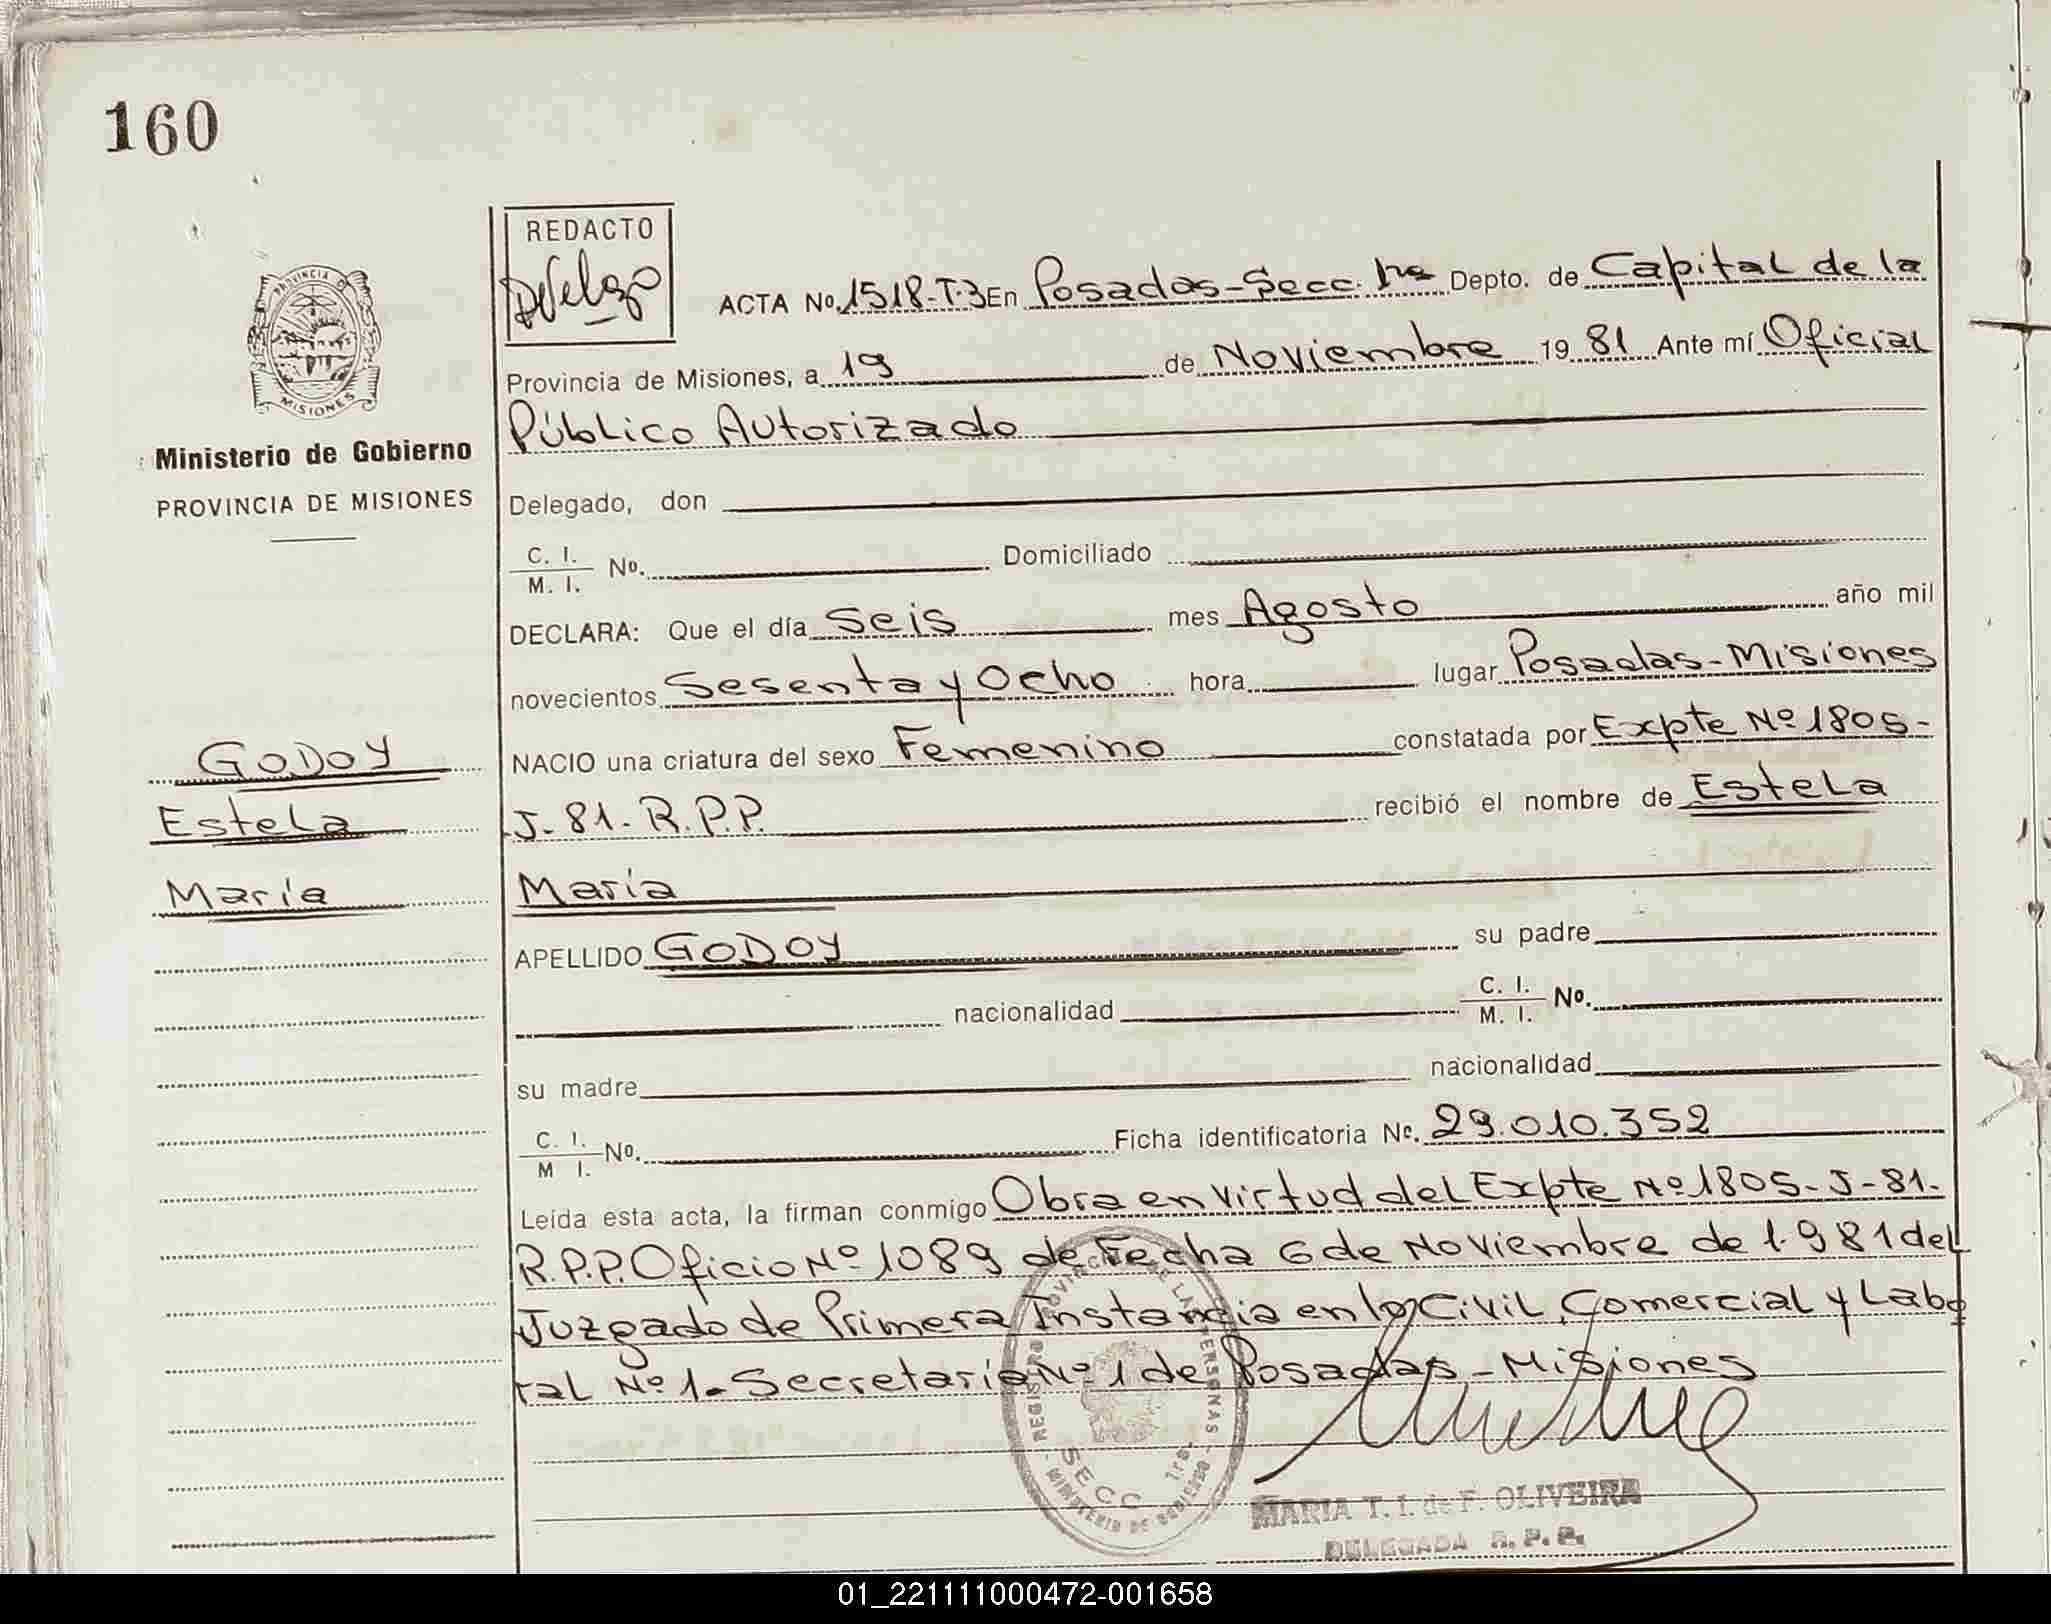 160
REDACTO
PROVINCIA DE MISIONES
Ministerio de Gobierno
PROVINCIA DE MISIONES
ACTA No. 1518-T.3 En Posadas-Secc. 1ra Depto. de Capital de la
Provincia de Misiones, a 19 de Noviembre 19 81 Ante mí Oficial
Público Autorizado
Delegado, don
C. I.
M. I. No. Domiciliado
DECLARA: Que el día Seis mes Agosto año mil
novecientos Sesenta y Ocho hora lugar Posadas-Misiones
NACIO una criatura del sexo Femenino constatada por Expte Nº 1805-
J-81-R.P.P. recibió el nombre de Estela
María
APELLIDO GODOY su padre
nacionalidad C. I.
M. I. No.
su madre nacionalidad
C. I.
M I. No. Ficha identificatoria No. 29.010.352
Leída esta acta, la firman conmigo Obra en virtud del Expte Nº 1805-J-81-
R.P.P. Oficio Nº 1089 de Fecha 6 de Noviembre de 1.981 del
Juzgado de Primera Instancia en lo Civil, Comercial y Labo
ral Nº 1- Secretaria Nº 1 de Posadas-Misiones
GODOY
Estela
María
REGISTRO PROVINCIAL DE LAS PERSONAS
SECC 1ra.
MINISTERIO DE GOBIERNO
MARIA T. I. de F. OLIVEIRA
DELEGADA R. P. P.
01_221111000472-001658